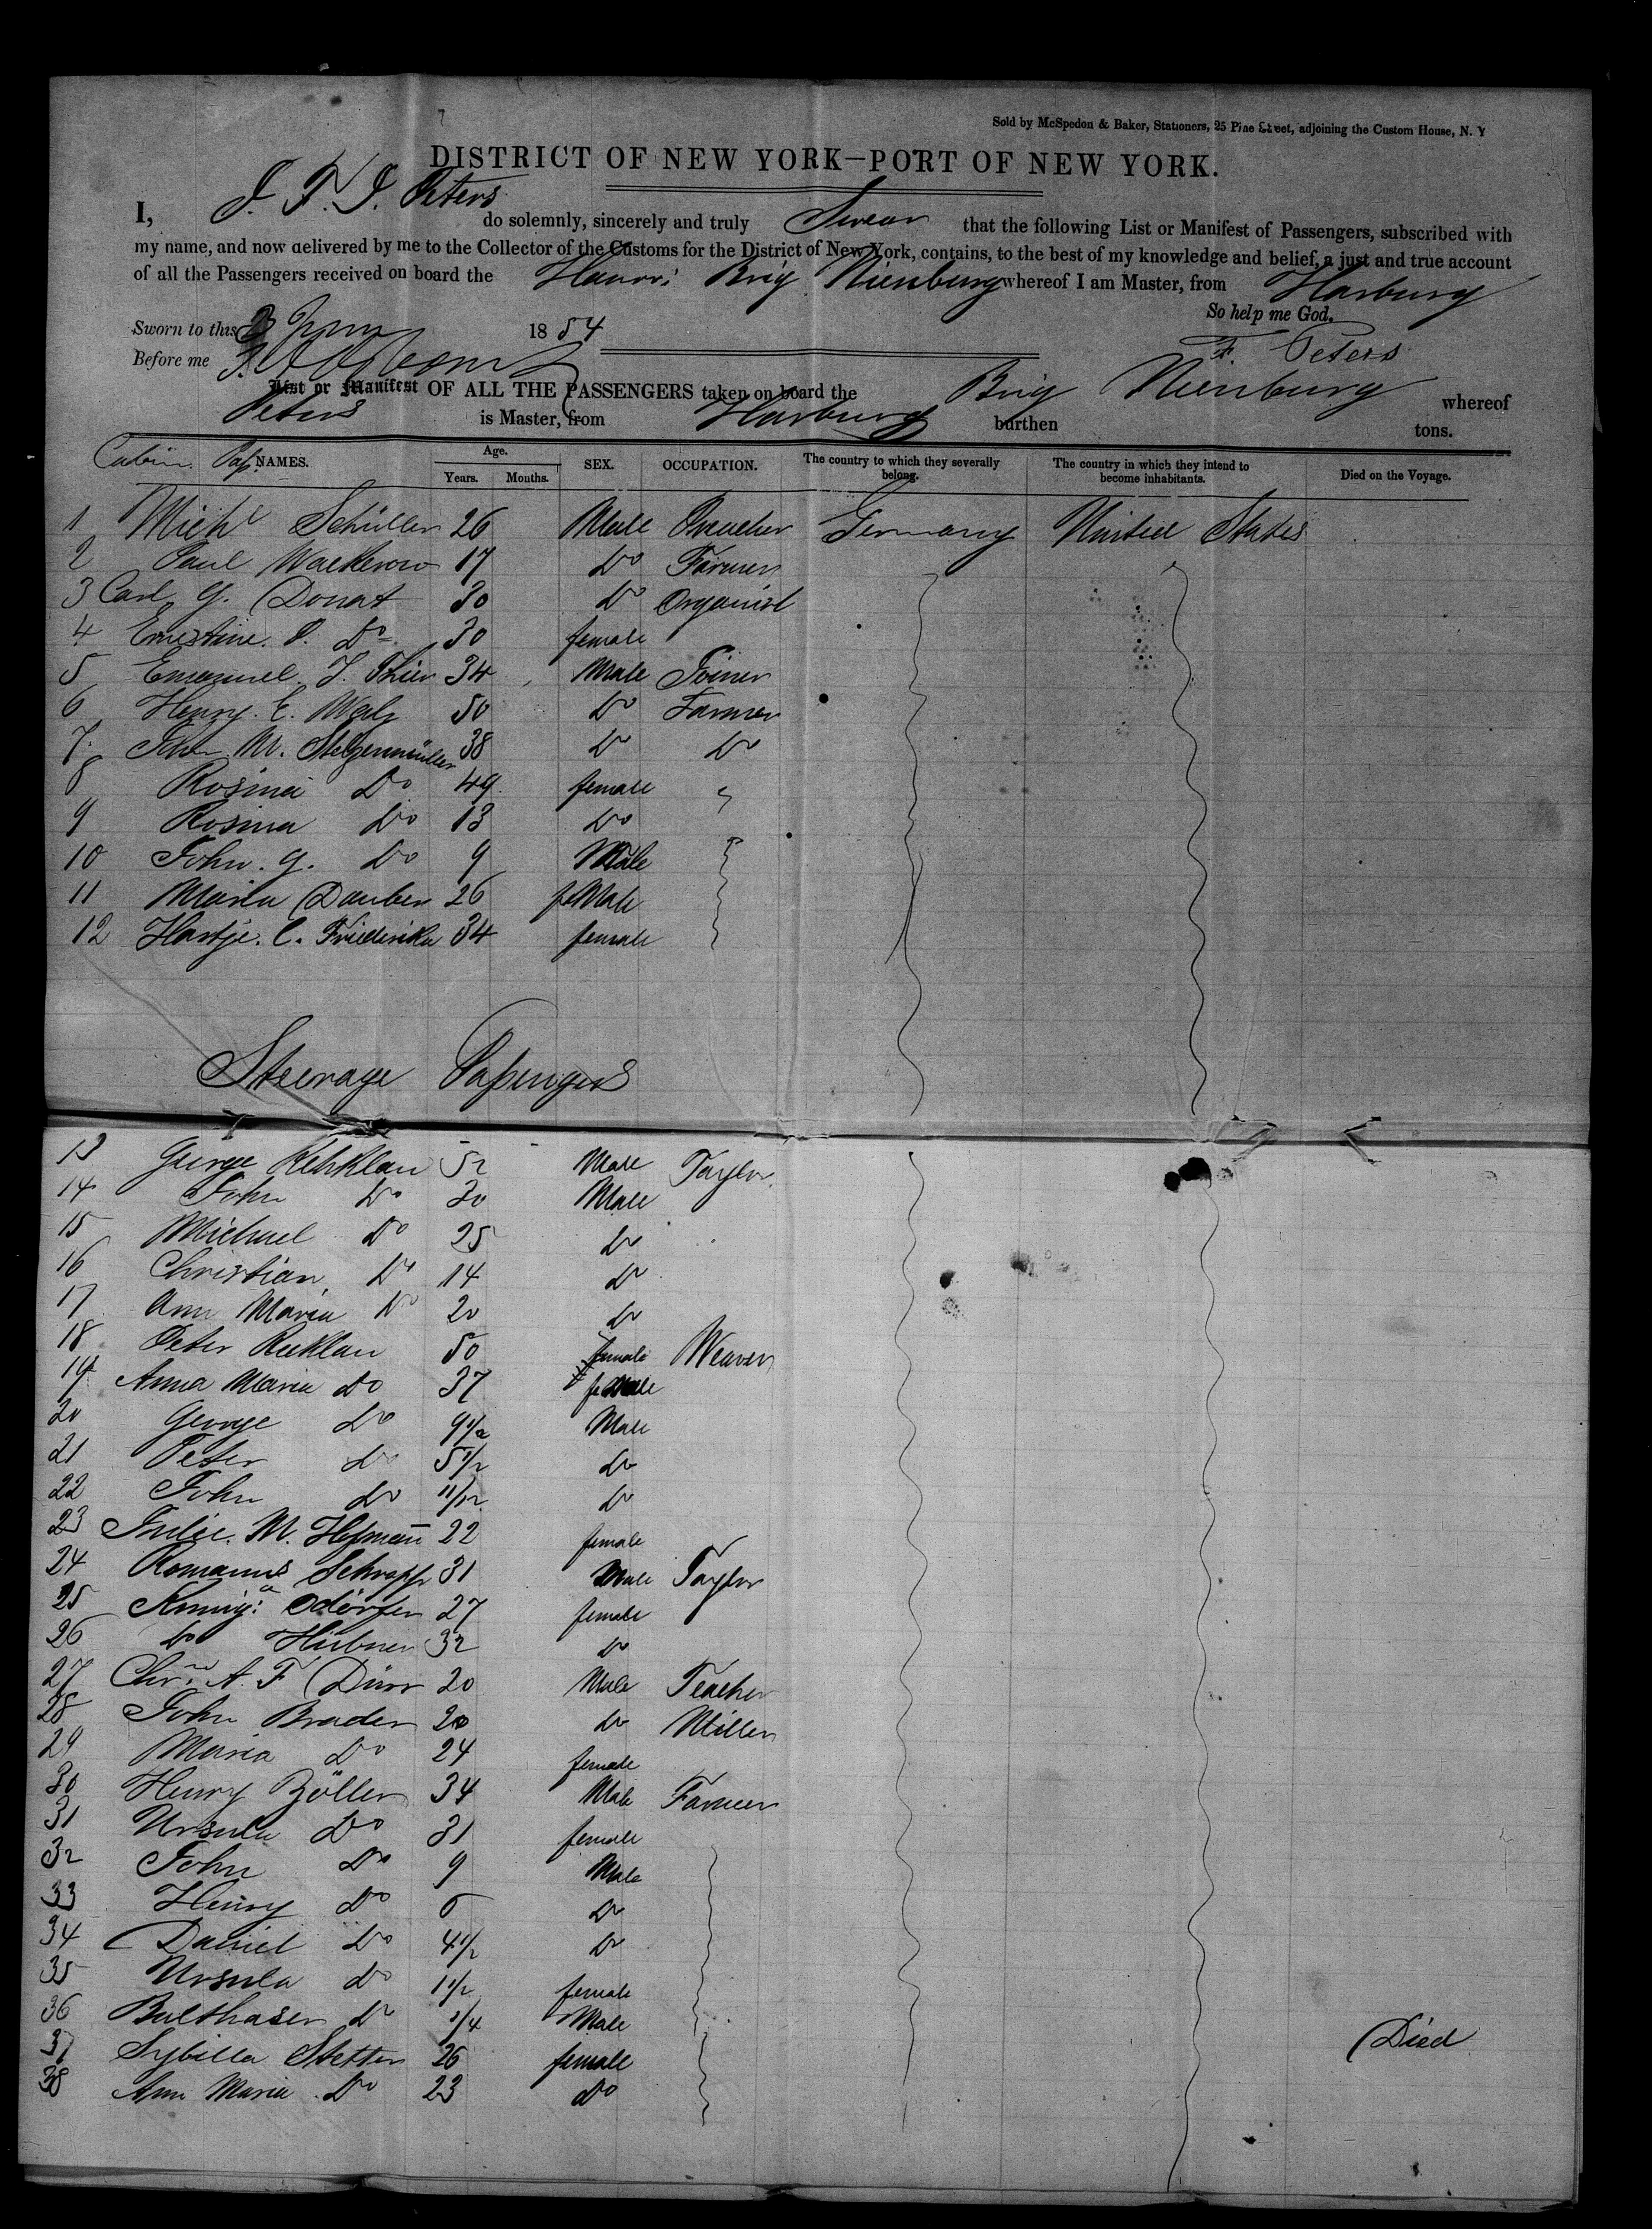 Sold by McSpedon & Baker, Stationers, 25 Pine Street, adjoining the Custom House, N. Y
DISTRICT OF NEW YORK—PORT OF NEW YORK.
I, J. F. J. Peters do solemnly, sincerely and truly Swear that the following List or Manifest of Passengers, subscribed with
my name, and now delivered by me to the Collector of the Customs for the District of New York, contains, to the best of my knowledge and belief, a just and true account
of all the Passengers received on board the Hanov: Brig Nienburg whereof I am Master, from Harburg
So help me God.
Sworn to this 3 June 1854
F. Peters
Before me
List or Manifest OF ALL THE PASSENGERS taken on board the Brig Nienburg whereof
Peters is Master, from Harburg burthen tons.
Cabin Pass. NAMES. Age. Years. Months. SEX. OCCUPATION. The country to which they severally belong. The country in which they intend to become inhabitants. Died on the Voyage.
1 Michl Schüller 26 Male Preacher Germany United States
2 Paul Wackerow 17 Do Farmer
3 Carl G. Donat 30 Do Organist
4 Ernestine. P. Do 30 female
5 Emanuel J. Thier 34 Male Joiner
6 Henry. E. Walz 50 Do Farmer
7. John M. Stelzenmüller 38 Do Do
8 Rosina Do 49 female
9 Rosina Do 13 Do
10 John. G. Do 9 Male
11 Maria Dauber 26 feMale
12 Hartje. C. Friederika 34 female
Steerage Passengers
13 George Rehklau 52 Male Taylor
14 John Do 30 Male
15 Michael Do 25 Do
16 Christian Do 14 Do
17 Ann Maria Do 20 Do
18 Peter Reklau 50 female Weaver
19 Anna Maria Do 37 feMale
20 George Do 9 1/2 Male
21 Peter Do 5 1/2 Do
22 John Do 11/12 Do
23 Julie. M. Hofmann 22 female
24 Romanus Schrapp 31 Male Taylor
25 Kunig: Odörfer 27 female
26 Do Hübner 32 Do
27 Chrn. A. F Dürr 20 Male Teacher
28 John Brader 20 Do Miller
29 Maria Do 24 female
30 Henry Zöller 34 Male Farmer
31 Ursula Do 31 female
32 John Do 9 Male
33 Henry Do 6 Do
34 Daniel Do 4 1/2 Do
35 Ursula Do 1 1/2 female
36 Balthaser Do 1/4 Male Died
37 Sybilla Stetter 26 female
38 Ann Maria Do 23 Do